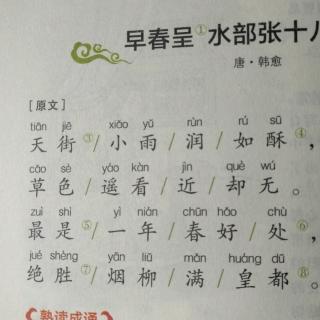 早春呈①水部张十
唐·韩愈
[原文]
tiān jiē xiǎo yǔ rùn rú sū
天街③/小雨/润/如酥④,
cǎo sè yáo kàn jìn què wú
草色/遥看/近/却无。
zuì shì yì nián chūn hǎo chù
最是⑤/一年/春好/处⑥,
jué shèng yān liǔ mǎn huáng dū
绝胜⑦/烟柳/满/皇都⑧。
熟读成诵